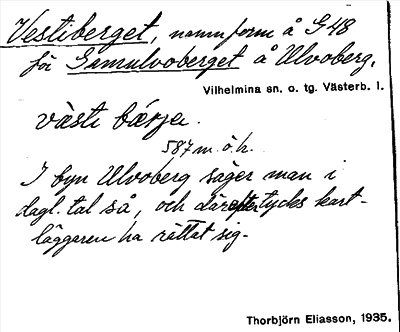 Vestiberget, namnform å G 48
för Gamulvoberget å Ulvoberg,
Vilhelmina sn. o. tg. Västerb. l.
västi bärje.
587 m. ö. h.
I byn Ulvoberg säger man i
dagl. tal så, och därefter tycks kart-
läggaren ha rättat sig.
Thorbjörn Eliasson, 1935.